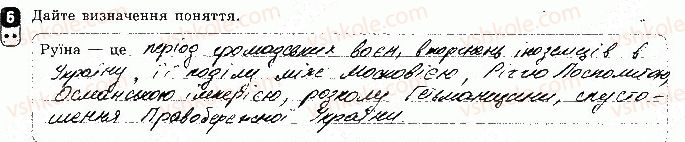 6 Дайте визначення поняття.
Руїна — це період громадських воєн, вторгнень іноземців в
Україну, її поділу між Московією, Річчю Посполитою,
Османською імперією, розколу Гетьманщини, спусто-
шення Правобережної України